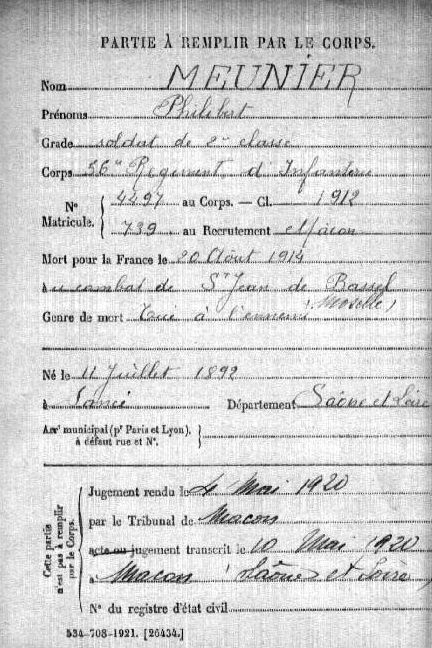 PARTIE À REMPLIR PAR LE CORPS.
Nom MEUNIER
Prénoms Philibert
Grade soldat de 2e classe
Corps 56e Régiment d'Infanterie
N° Matricule. { 4497 au Corps. — Cl. 1912
739 au Recrutement Mâcon
Mort pour la France le 20 Août 1914
au combat de St Jean de Bassel
(Moselle)
Genre de mort Tué à l'ennemi
Né le 11 Juillet 1892
à Département Saône et Loire
Arrt municipal (pr Paris et Lyon),
à défaut rue et N°.
Cette partie n'est pas à remplir par le Corps.
Jugement rendu le 4 Mai 1920
par le Tribunal de Macon
acte ou jugement transcrit le 10 Mai 1920
à Macon Saône et Loire
N° du registre d'état civil
534-708-1921. [26434.]